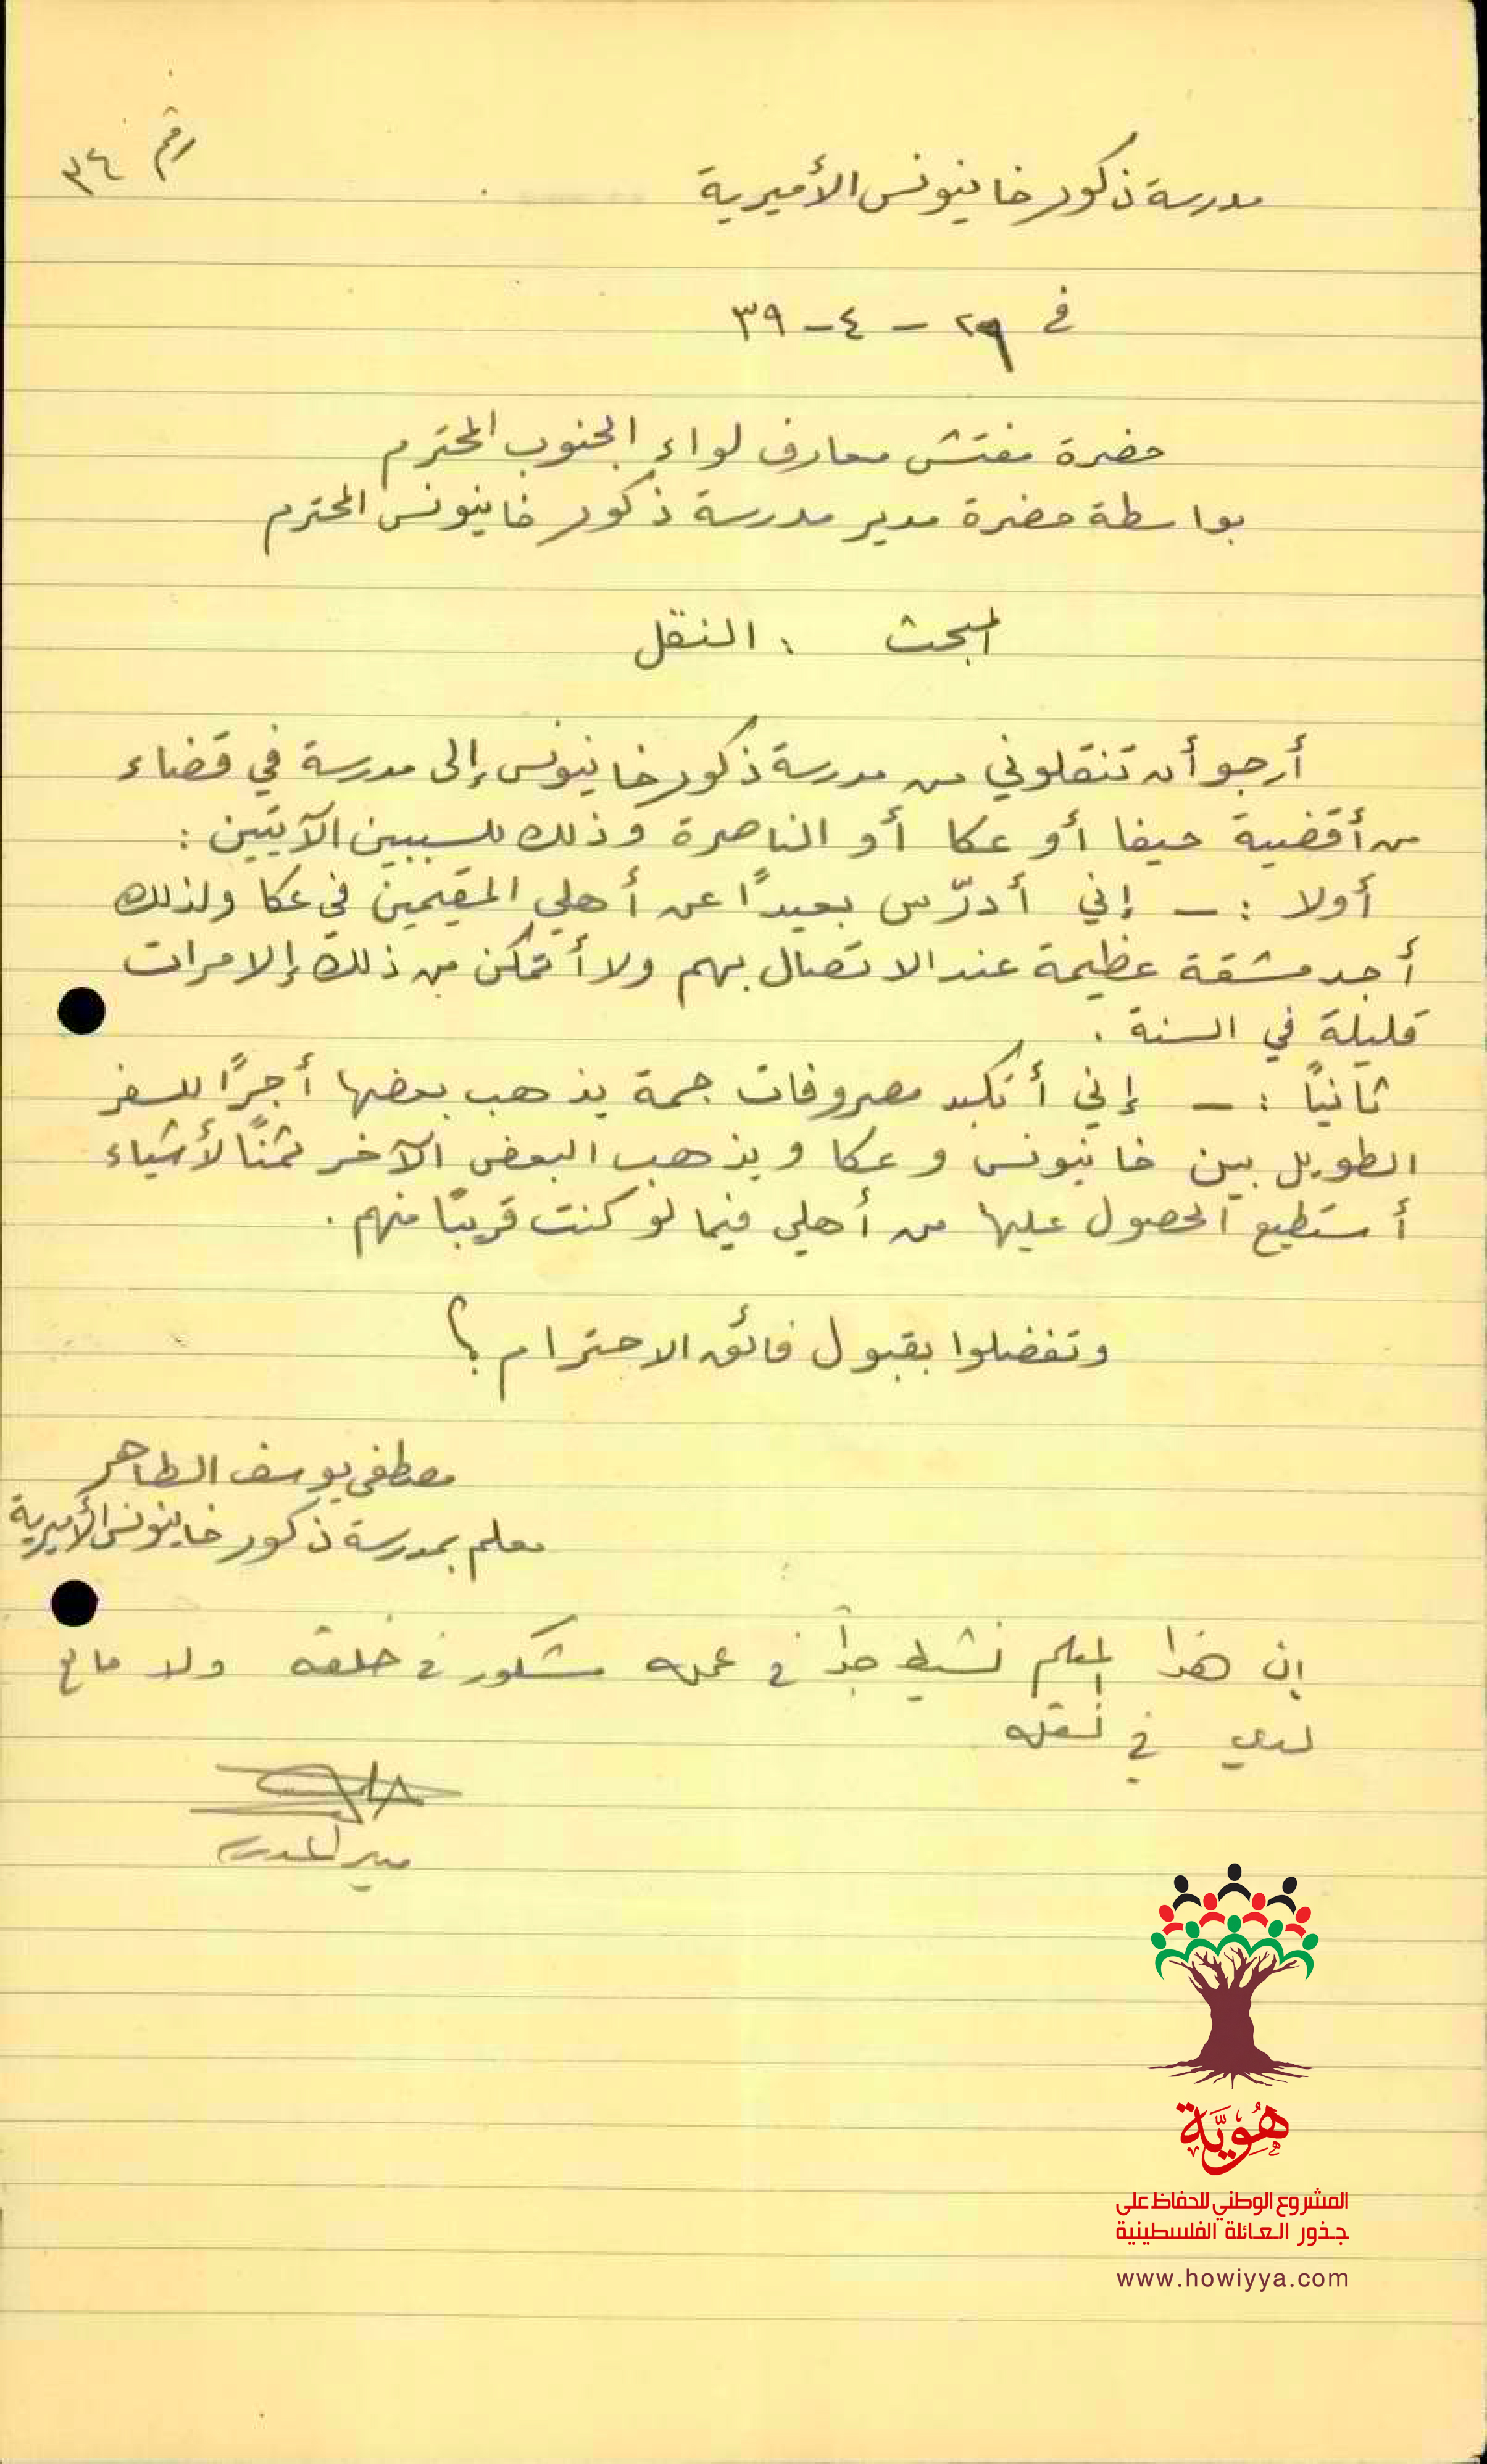 رقم ٣٤
مدرسة ذكور خانيونس الأميرية
في ٢٩ - ٤ - ٣٩
حضرة مفتش معارف لواء الجنوب المحترم
بواسطة حضرة مدير مدرسة ذكور خانيونس المحترم
المبحث : النقل
أرجو أن تنقلوني من مدرسة ذكور خانيونس إلى مدرسة في قضاء
من أقضية حيفا أو عكا أو الناصرة وذلك للسببين الآتيين :
أولا :- إني أدرّس بعيدًا عن أهلي المقيمين في عكا ولذلك
أجد مشقة عظيمة عند الاتصال بهم ولا أتمكن من ذلك إلا مرات
قليلة في السنة .
ثانيًا :- إني أتكبد مصروفات جمة يذهب بعضها أجرًا للسفر
الطويل بين خانيونس وعكا ويذهب البعض الآخر ثمنًا لأشياء
أستطيع الحصول عليها من أهلي فيما لو كنت قريبًا منهم .
وتفضلوا بقبول فائق الاحترام ؟
مصطفى يوسف الطاهر
معلم بمدرسة ذكور خانيونس الأميرية
إن هذا المعلم نشيط جداً في عمله مشكور في خلقه ولا مانع
لدي في نقله
مدير المدرسة
هُوِيَّة
المشروع الوطني للحفاظ على
جذور العائلة الفلسطينية
www.howiyya.com